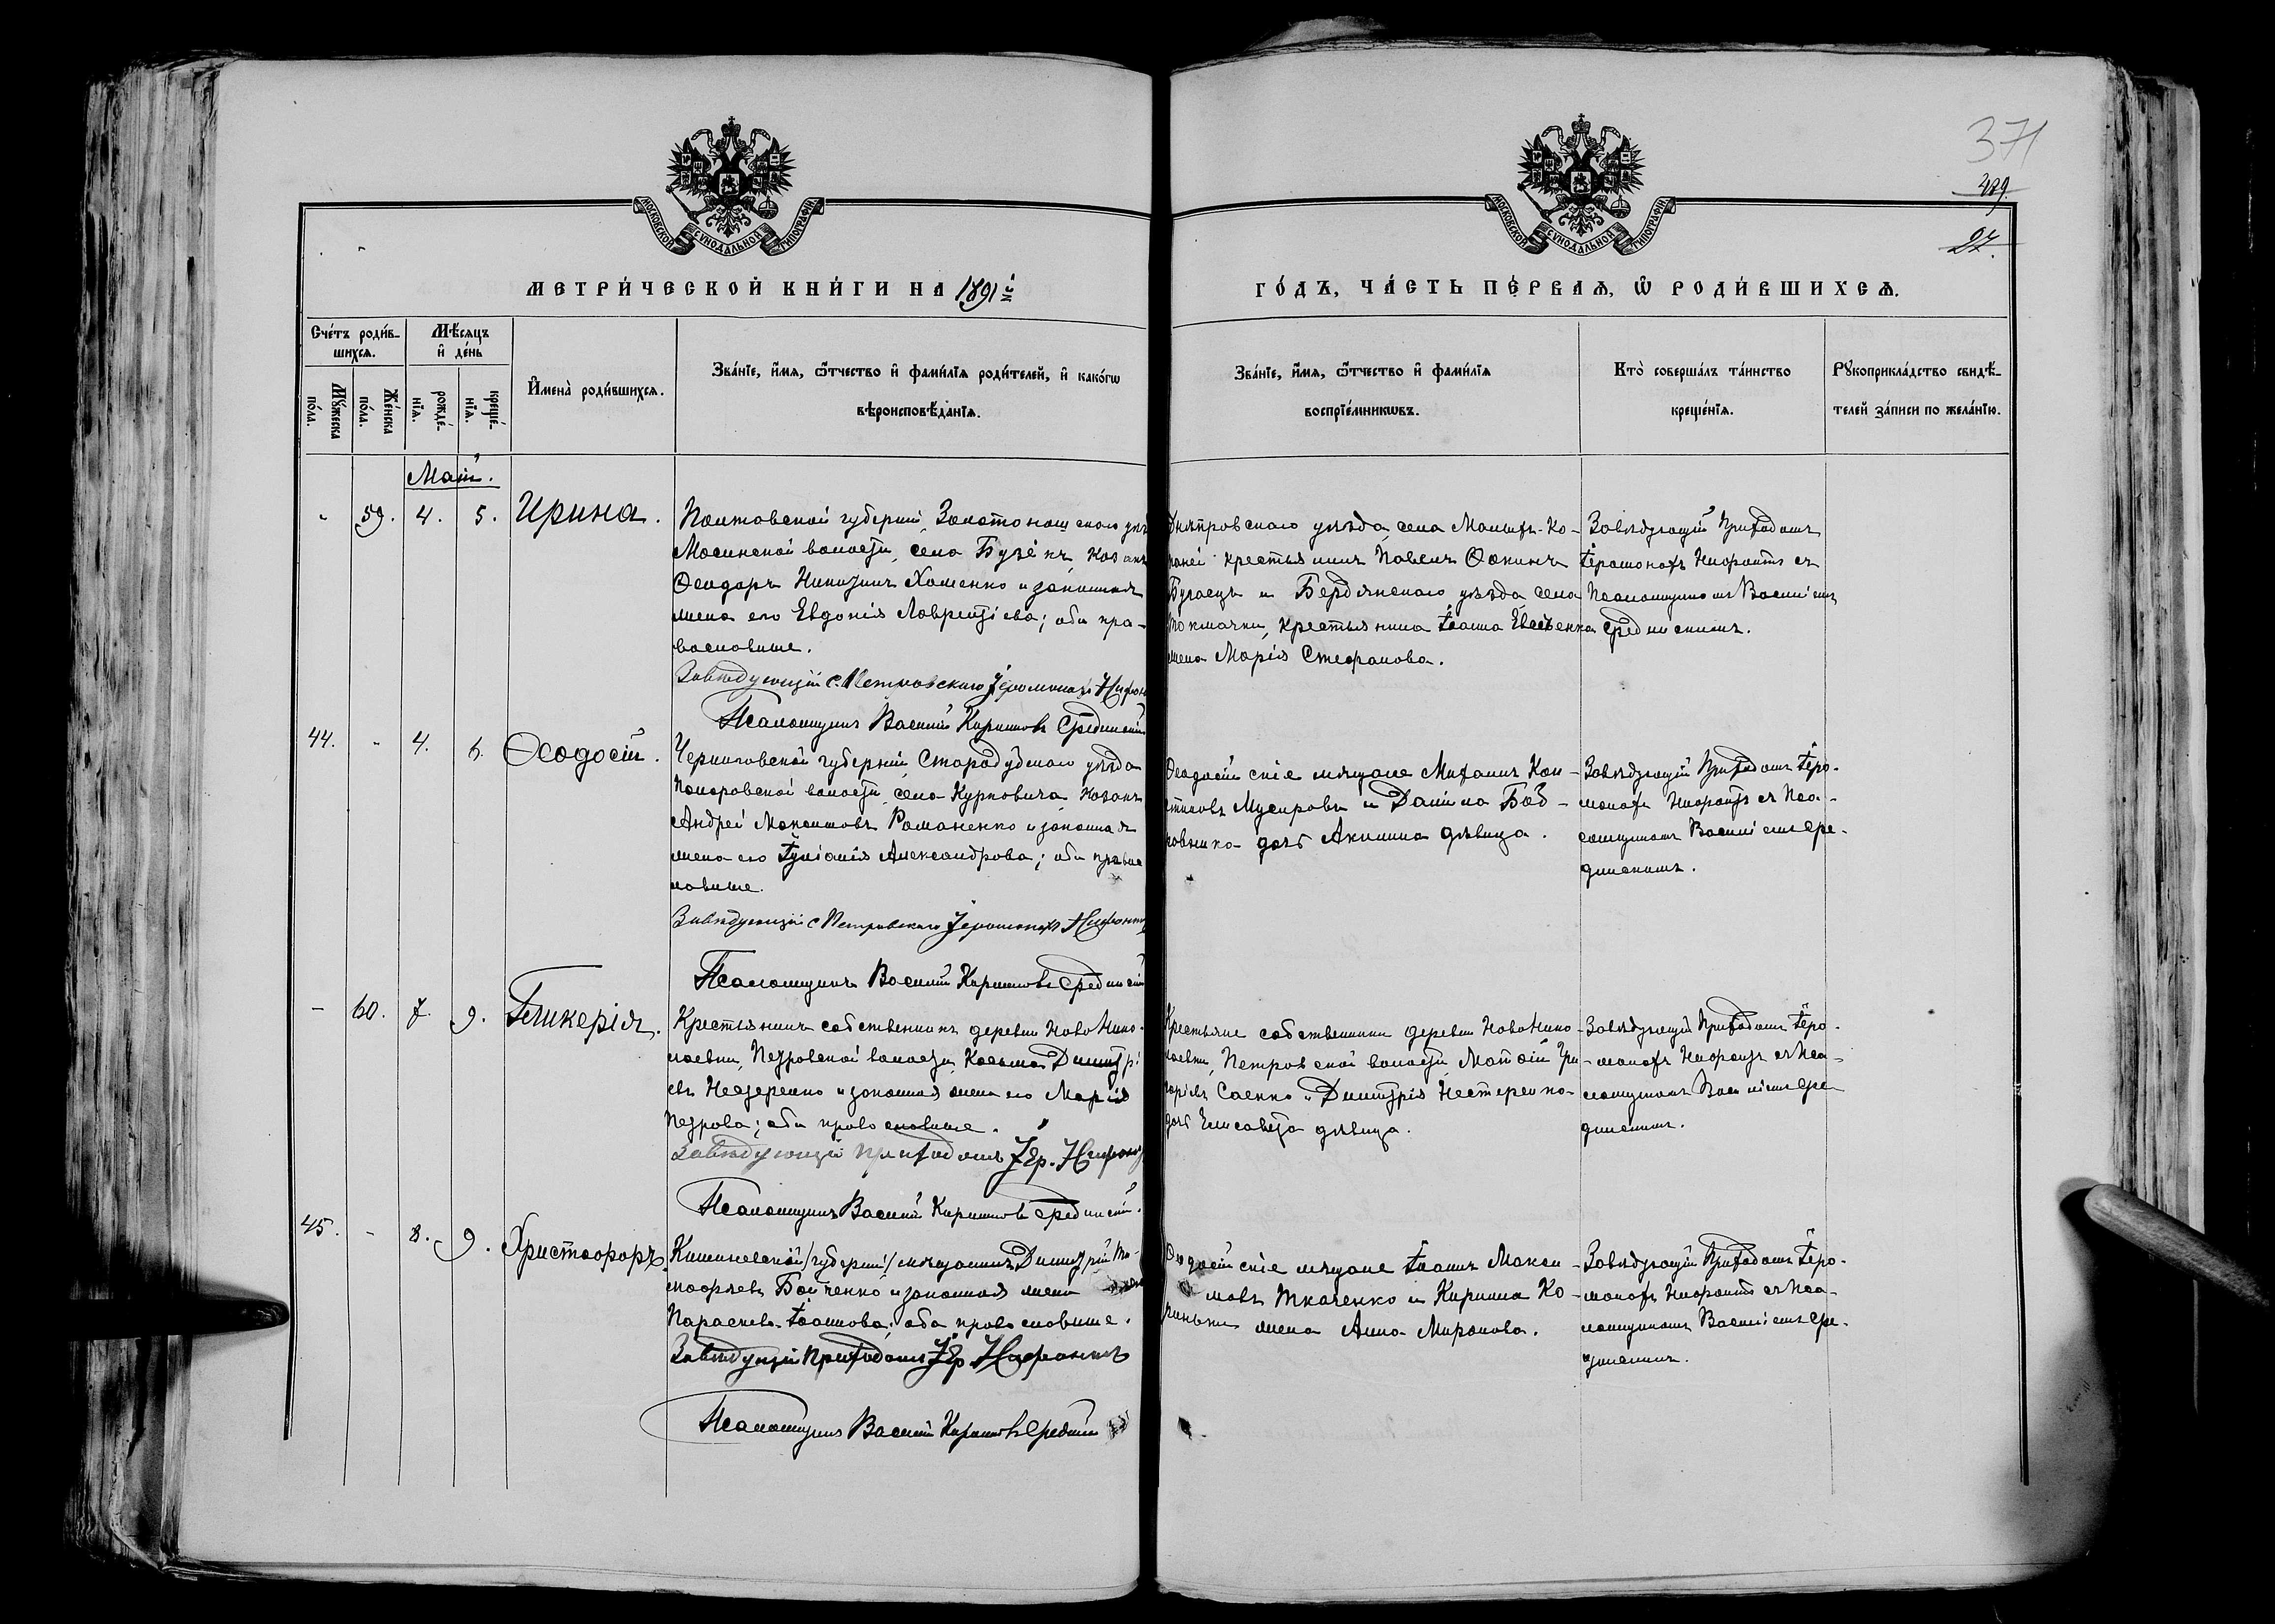 371
489.
27.
МОСКОВСКОЙ СѴНОДАЛЬНОЙ ТИПОГРАФІИ
МОСКОВСКОЙ СѴНОДАЛЬНОЙ ТИПОГРАФІИ
МЕТРИ́ЧЕСКОЙ КНИ́ГИ НА 1891й
ГО́ДЪ, ЧА́СТЬ ПЕ́РВАѦ, Ѡ҆ РОДИ́ВШИХСѦ.
Сче́тъ роди́в-
шихсѧ.
Мꙋ́жеска по́ла.
Же́нска по́ла.
Мѣ́сѧцъ
и҆ де́нь
рожде́-
нїѧ.
креще́-
нїѧ.
И҆мена̀ роди́вшихсѧ.
Зва́нїе, и҆́мѧ, ѻ҆́тчество и҆ фами́лїѧ роди́телей, и҆ како́гѡ
вѣроисповѣ́данїѧ.
Зва́нїе, и҆́мѧ, ѻ҆́тчество и҆ фами́лїѧ
воспрїе́мникѡвъ.
Кто̀ соверша́лъ та́инство
креще́нїѧ.
Рꙋкоприкла́дство свидѣ́-
телей за́писи по жела́нїю.
Май.
„ 59. 4. 5. Ирина.
Полтавской губерніи, Золотоношскаго уѣз
волости, села козакъ
Ѳеодоръ Хоменко и законная
жена его Евдокія Лаврентіева; оба пра-
вославные.
Завѣдующій с. Петровскаго Іеромонахъ Нифон
Псаломщикъ Василій Кириловъ Срединскій
Днѣпровскаго уѣзда, села
крестьянинъ Павелъ Ѳокинъ
Бугаецъ и Бердянскаго уѣзда села
Токмачки, крестьянина Іоанна
жена Марія Стефанова.
Завѣдующій Приходомъ
Іеромонахъ Нифонтъ съ
Псаломщикомъ Василіемъ
Срединскимъ.
44. „ 4. 6. Ѳеодосій.
Черниговской губерніи Стародубскаго уѣзда
волости, села Курковича козакъ
Андрей Романенко и законная
жена его Іуліанія Александрова; оба правос
лавные.
Завѣдующій с Петровскаго Іеромонахъ Нифонтъ
Псаломщикъ Василій Кириловъ Срединскій
Ѳеодосійскіе мѣщане Михаилъ Кон-
и Даніила
дочь Акилина дѣвица.
Завѣдующій Приходомъ Іеро-
монахъ Нифонтъ съ Пса-
ломщикомъ Василіемъ Сре-
динскимъ.
- 60. 7. 9. Гликерія.
Крестьянинъ собственникъ деревни НовоНико-
лаевки, Петровской волости, Косьма Димитрі
евъ Нестеренко и законная жена его Марія
Петрова; оба православные.
Завѣдующій приходомъ Іер. Нифонтъ
Псаломщикъ Василій Кириловъ Срединскій.
Крестьяне собственники деревни НовоНико-
лаевки, Петровской волости, Матѳій Гри
горіевъ Саенко и Димитрія Нестеренко-
дочь Елисавета дѣвица.
Завѣдующій Приходомъ Іеро-
монахъ Нифонтъ съ Пса-
ломщикомъ Василіемъ Сре-
динскимъ.
45. - 8. 9. Христофоръ.
Кишиневской /губерніи/ мѣщанинъ Димитрій Ти-
моѳеевъ Бойченко и законная жена
Параскева Іоаннова; оба православные.
Завѣдующій Приходомъ Іер. Нифонтъ
Псаломщикъ Василій Кириловъ Средин
Ѳеодосійскіе мѣщане Іоаннъ Макси-
мовъ Ткаченко и Кирилла Ко-
жена Анна Миронова.
Завѣдующій Приходомъ Іеро-
монахъ Нифонтъ съ Пса-
ломщикомъ Василіемъ Сре-
динскимъ.